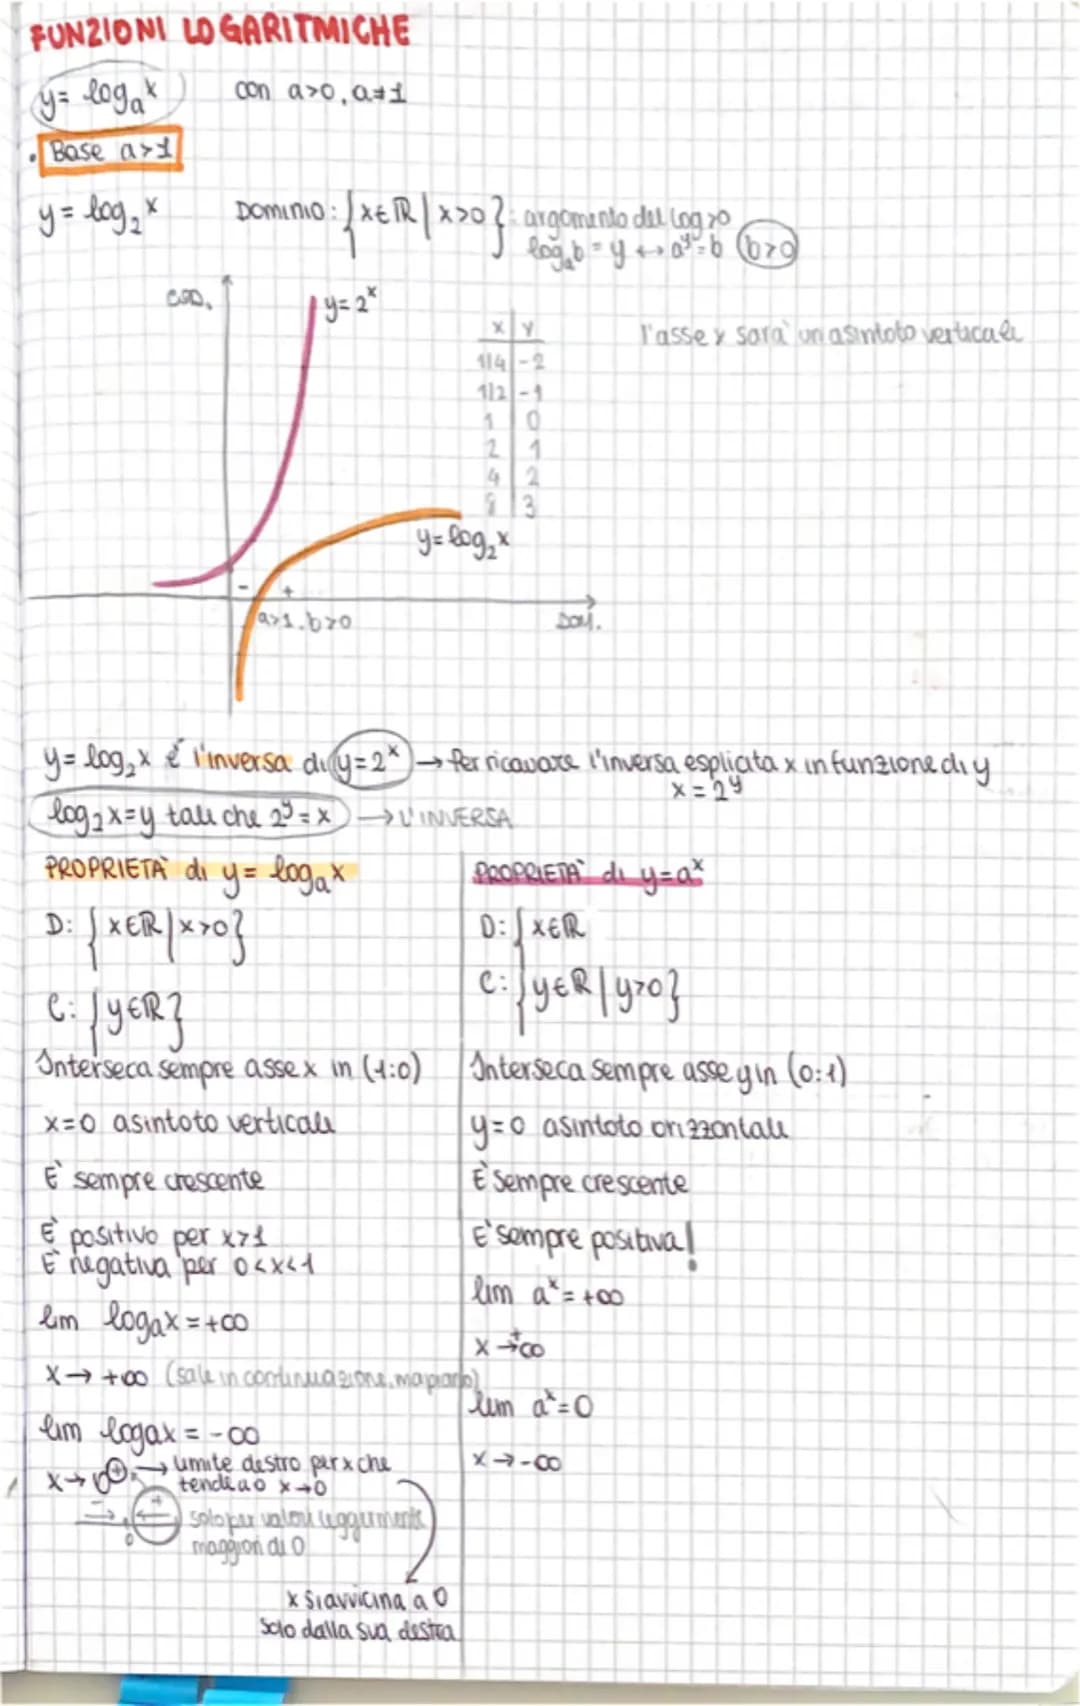 FUNZIONI LOGARITMICHE
y = logₐx con a>0, a≠1
• Base a>1
y = log₂x DOMINIO: {x∈ℝ | x>0} : argomento del log >0
logₐb = y ↔ aʸ=b (b>0)
COD.
y=2ˣ
l'asse y sarà un asintoto verticale
x | y
1/4 | -2
1/2 | -1
1 | 0
2 | 1
4 | 2
8 | 3
y=log₂x
- +
a>1, b>0
DOM.
y=log₂x è l'inversa di y=2ˣ → Per ricavare l'inversa esplicita x in funzione di y
x = 2ʸ
log₂x=y tale che 2ʸ=x → L'INVERSA
PROPRIETÀ di y = logₐx
D: {x∈ℝ | x>0}
C: {y∈ℝ}
Interseca sempre asse x in (1:0)
x=0 asintoto verticale
È sempre crescente
È positivo per x>1
È negativa per 0<x<1
lim logₐx = +∞
x → +∞ (sale in continuazione, ma piano)
lim logax = -∞
x → 0⁺ → limite destro per x che
tende a 0 x→0
- → 0 ← +
solo per valori leggermente
maggiori di 0
x si avvicina a 0
solo dalla sua destra
PROPRIETÀ di y=aˣ
D: {x∈ℝ
C: {y∈ℝ | y>0}
Interseca sempre asse y in (0:1)
y=0 asintoto orizzontale
È sempre crescente
È sempre positiva!
lim aˣ = +∞
x → +∞
lim aˣ = 0
x → -∞